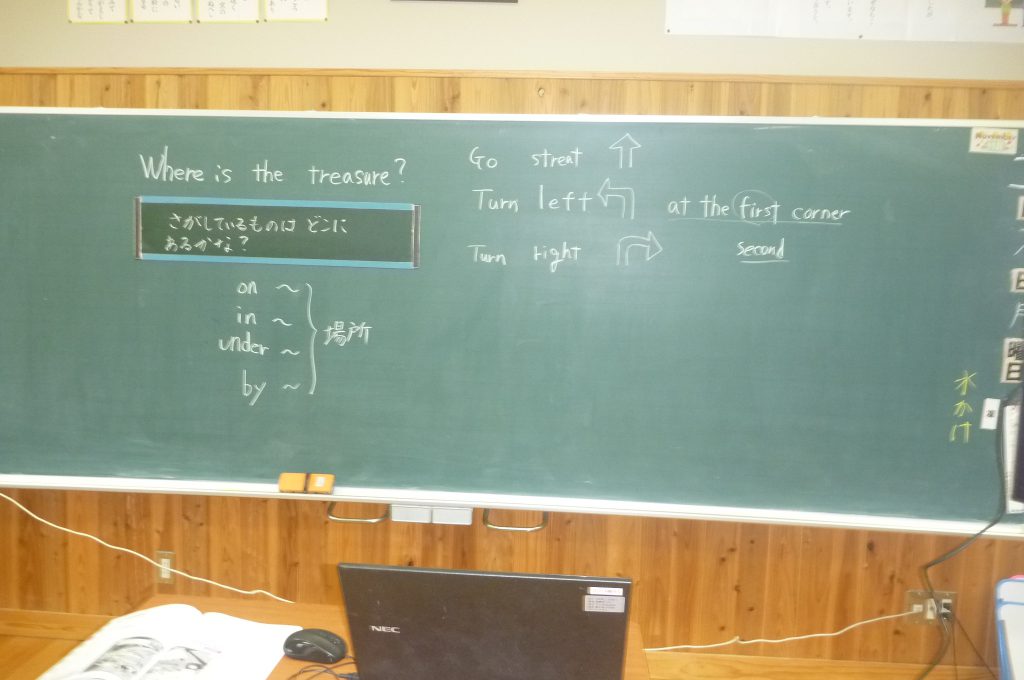 Where is the treasure?
さがしているものは どこに
あるかな?
on ~
in ~
under ~
by ~
場所
Go streat
Turn left at the first corner
Turn right second
November
日
月
曜
日
水かけ
NEC